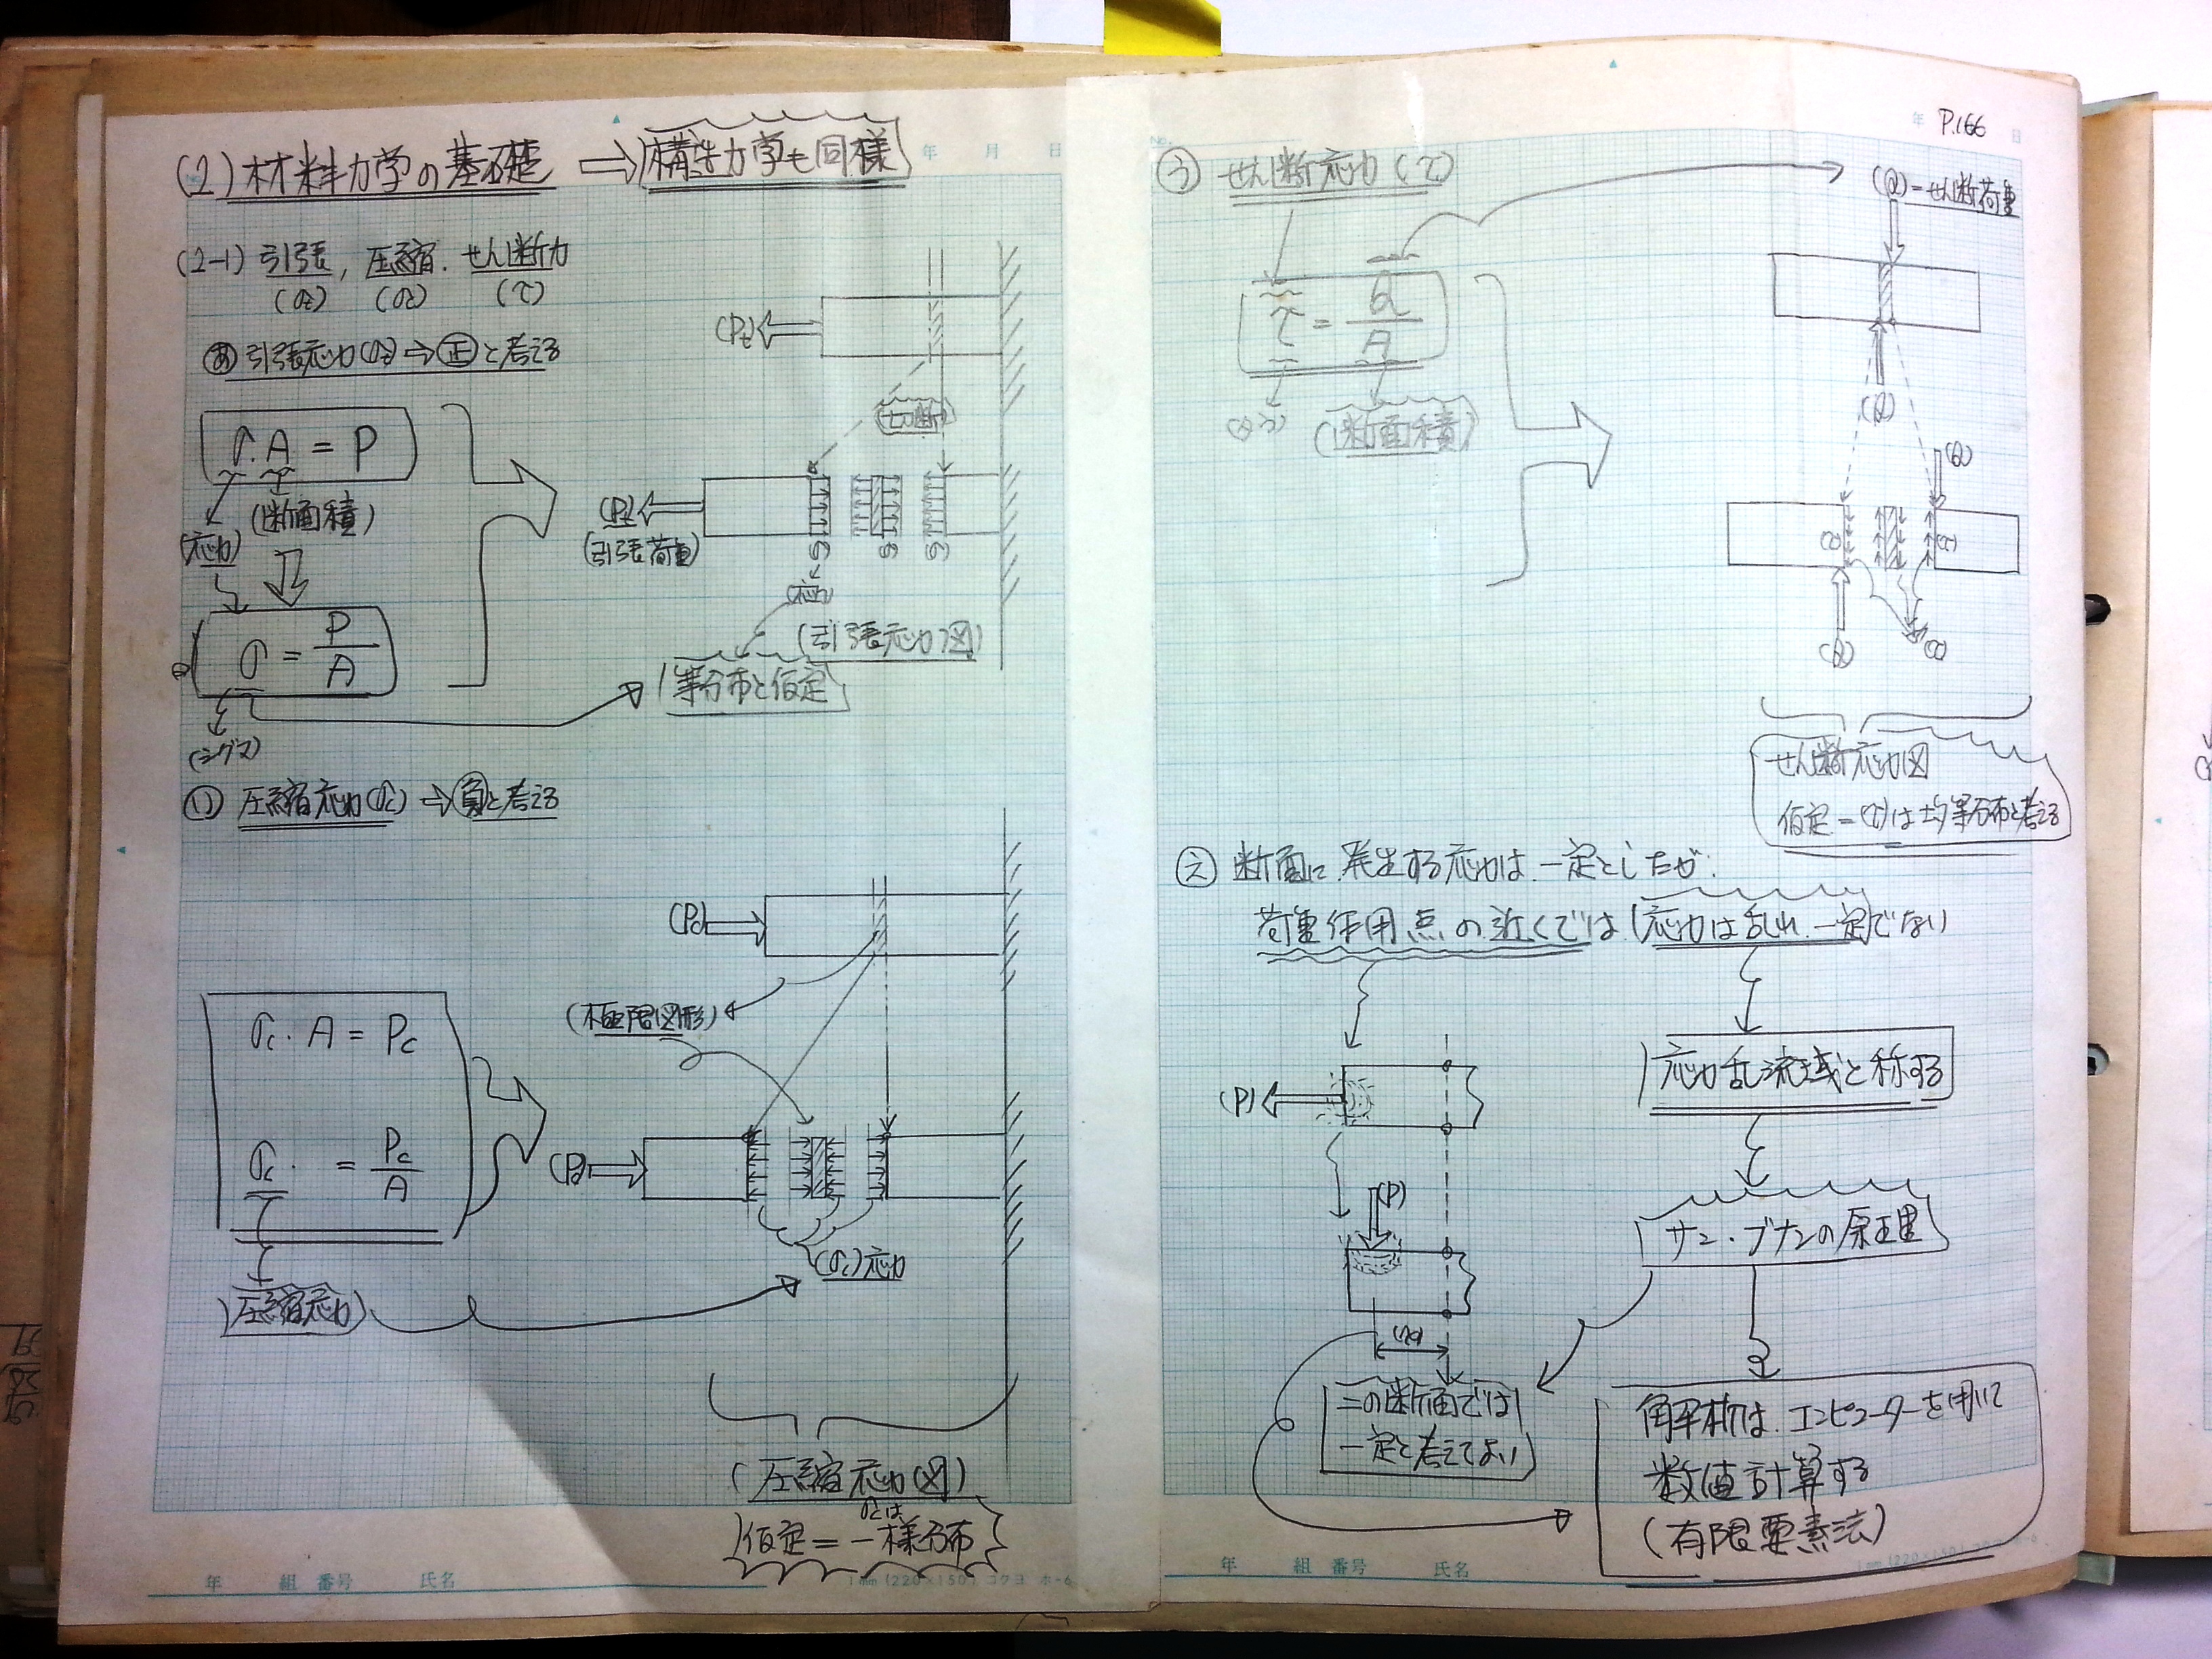 (2) 材料力学の基礎 ⇒ 構造力学も同様
年 月 日
(2-1) 引張, 圧縮. せん断力
(σt) (σc) (τ)
(Pt)
あ 引張応力(σt) → 正 と考える
切断
σ・A = P
(断面積)
(応力)
(Pt)
(引張荷重)
σ σ σ
応力
(引張応力図)
σ = P/A
等分布と仮定
(シグマ)
い 圧縮応力(σc) → 負と考える
(Pc)
(極限図形)
σc・A = Pc
σc・ = Pc/A
(Pc)
(σc)応力
圧縮応力
(圧縮応力図)
σcは
仮定=一様分布
年 組 番号 氏名
1mm (220×150) コクヨ ホ-6
No.
年 P.166 日
う せん断応力(τ)
(Q)=せん断荷重
τ = Q/A
(タウ) (断面積)
(Q)
(Q)
(τ) (τ)
(Q) (τ)
せん断応力図
仮定=(τ)は均等分布と考える
え 断面に発生する応力は一定としたが.
荷重作用点の近くでは 応力は乱れ 一定でない
(P)
応力乱流域と称する
(P)
サン・ブナンの原理
この断面では
一定と考えてよい
解析は コンピューターを用いて
数値計算する
(有限要素法)
年 組 番号 氏名
1mm (220×150) コクヨ ホ-6